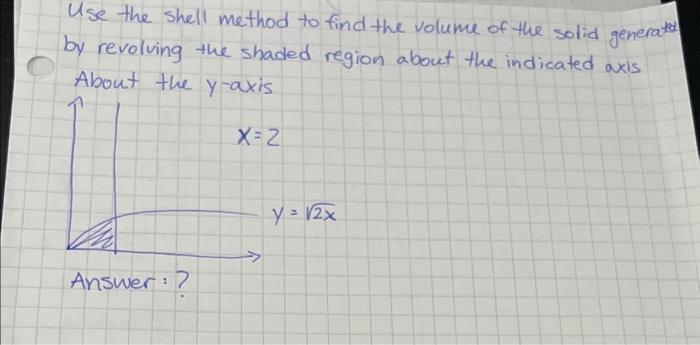 Use the shell method to find the volume of the solid generated
by revolving the shaded region about the indicated axis
About the y-axis
x=2
y = √2x
Answer: ?